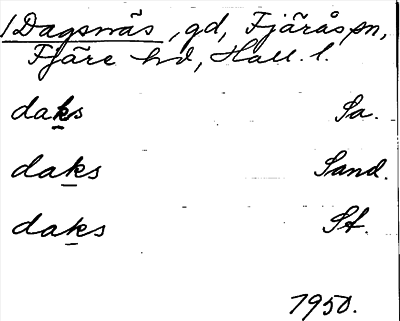 /Dagsnäs, gd, Fjärås sn,
Fjäre hd, Hall. l.
daks Sa.
daks Sand.
daks St.
1950.